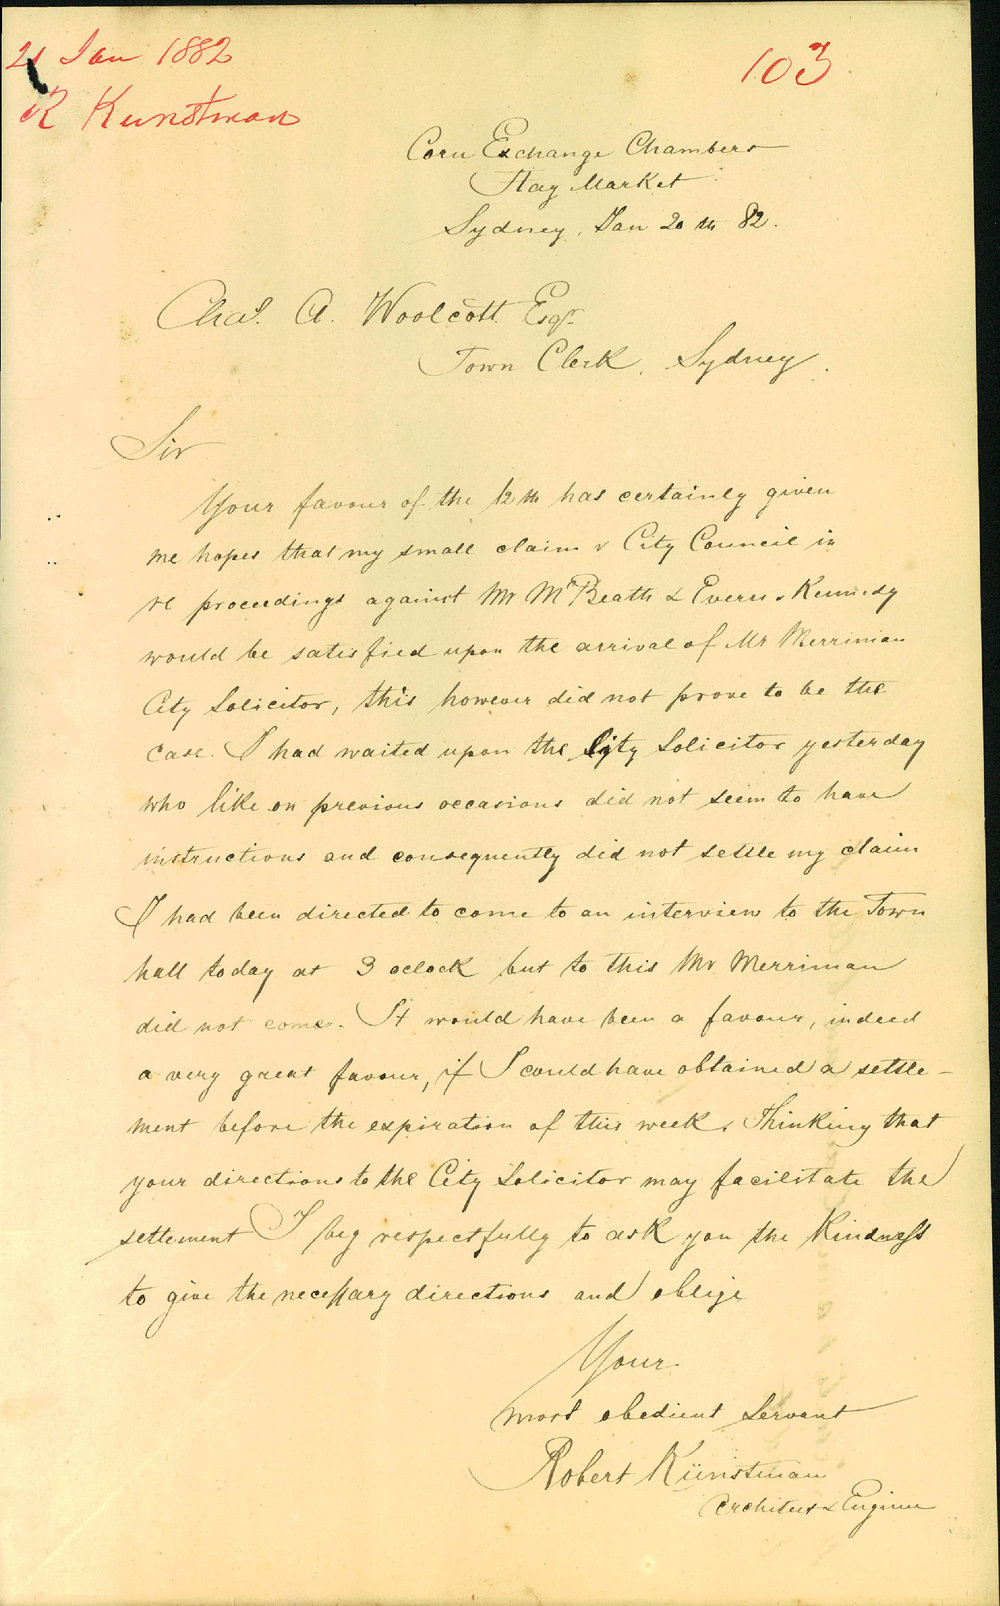 21 Jan 1882
103
R Kunstman
Corn Exchange Chambers
Hay Market
Sydney, Jan 20th 82.
Chas. A. Woolcott Esqr.
Town Clerk, Sydney.
Sir
Your favour of the 12th has certainly given
me hopes that my small claim v City Council in
re proceedings against Mr McBeath & Evers v Kennedy
would be satisfied upon the arrival of Mr Merriman
City Solicitor, this however did not prove to be the
case. I had waited upon the City Solicitor yesterday
who like on previous occasions did not seem to have
instructions and consequently did not settle my claim
I had been directed to come to an interview to the Town
hall today at 3 oclock but to this Mr Merriman
did not come. It would have been a favour, indeed
a very great favour, if I could have obtained a settle-
ment before the expiration of this week. Thinking that
your directions to the City Solicitor may facilitate the
settlement I beg respectfully to ask you the Kindness
to give the necessary directions and oblige
Your
most obedient Servant
Robert Künstman
Architect & Engineer